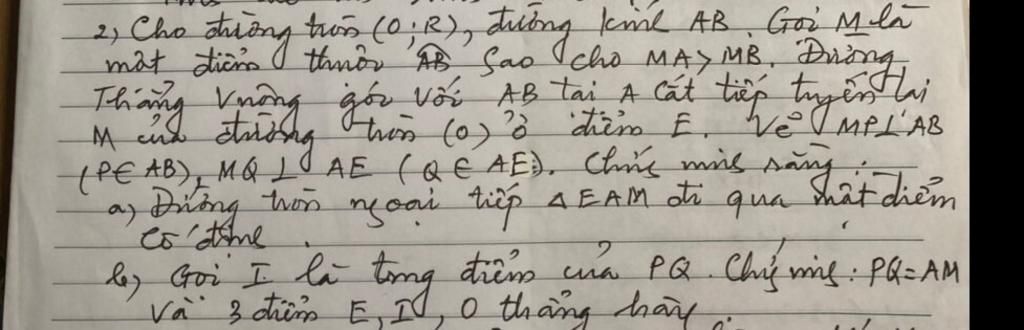 2) Cho đường tròn (O; R), đường kính AB. Gọi M là
một điểm thuộc AB sao cho MA > MB. Đường
Thẳng vuông góc với AB tại A cắt tiếp tuyến tại
M của đường tròn (O) ở điểm E. Vẽ MP⊥AB
(P∈AB), MQ ⊥ AE (Q ∈ AE). Chứng minh rằng:
a) Đường tròn ngoại tiếp ΔEAM đi qua một điểm
cố định.
b) Gọi I là trung điểm của PQ. Chứng minh: PQ=AM
và 3 điểm E, I, O thẳng hàng